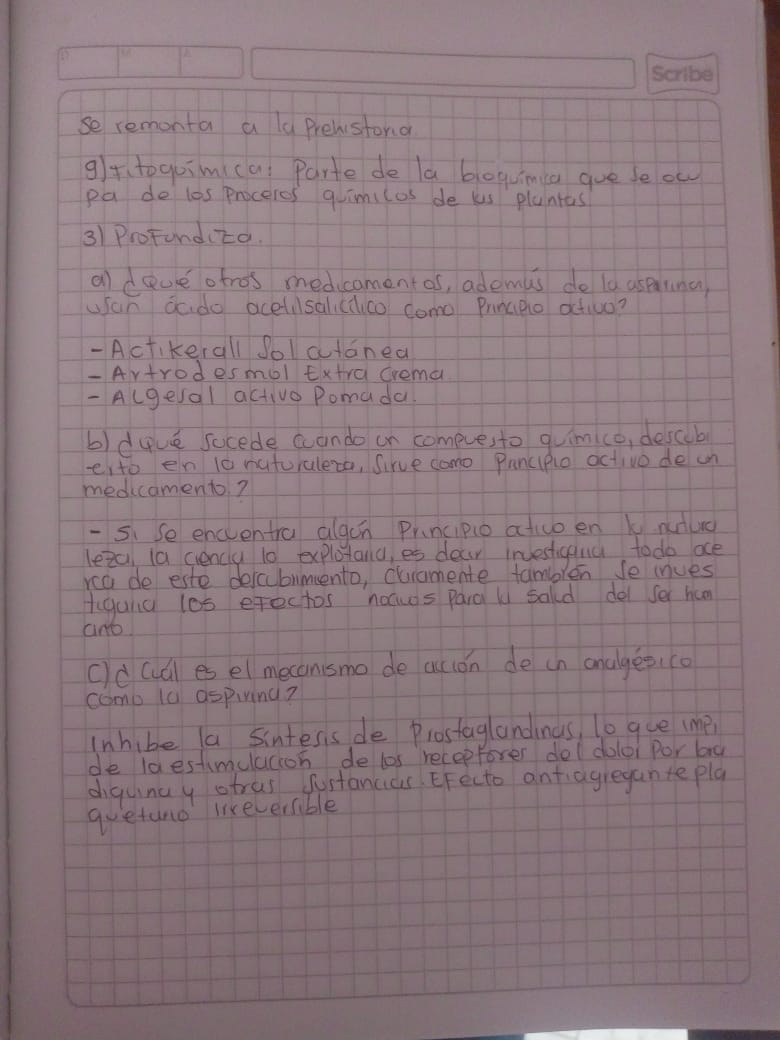 D M A
Scribe
se remonta a la Prehistoria
g) Fitoquímica: Parte de la bioquímica que se ocu
pa de los Procesos químicos de las plantas
3) Profundiza.
a) ¿Qué otros medicamentos, además de la aspirina,
usan ácido acetilsalicílico como Principio activo?
- Actikerall Sol cutánea
- Artrodesmol Extra Crema
- Algesal activo Pomada.
b) ¿Qué sucede cuando un compuesto químico, descub
ierto en la naturaleza, sirve como Principio activo de un
medicamento?
- Si se encuentra algún Principio activo en la natura
leza, la ciencia lo explotaria, es decir investigaria todo ace
rca de este descubrimiento, claramente también se inves
tigaria los efectos nocivos para la salud del ser hum
ano.
c) ¿Cuál es el mecanismo de acción de un analgésico
como la aspirina?
Inhibe la síntesis de Prostaglandinas, lo que impi
de la estimulación de los receptores del dolor por bra
diquina y otras sustancias. Efecto antiagregante pla
quetario irreversible